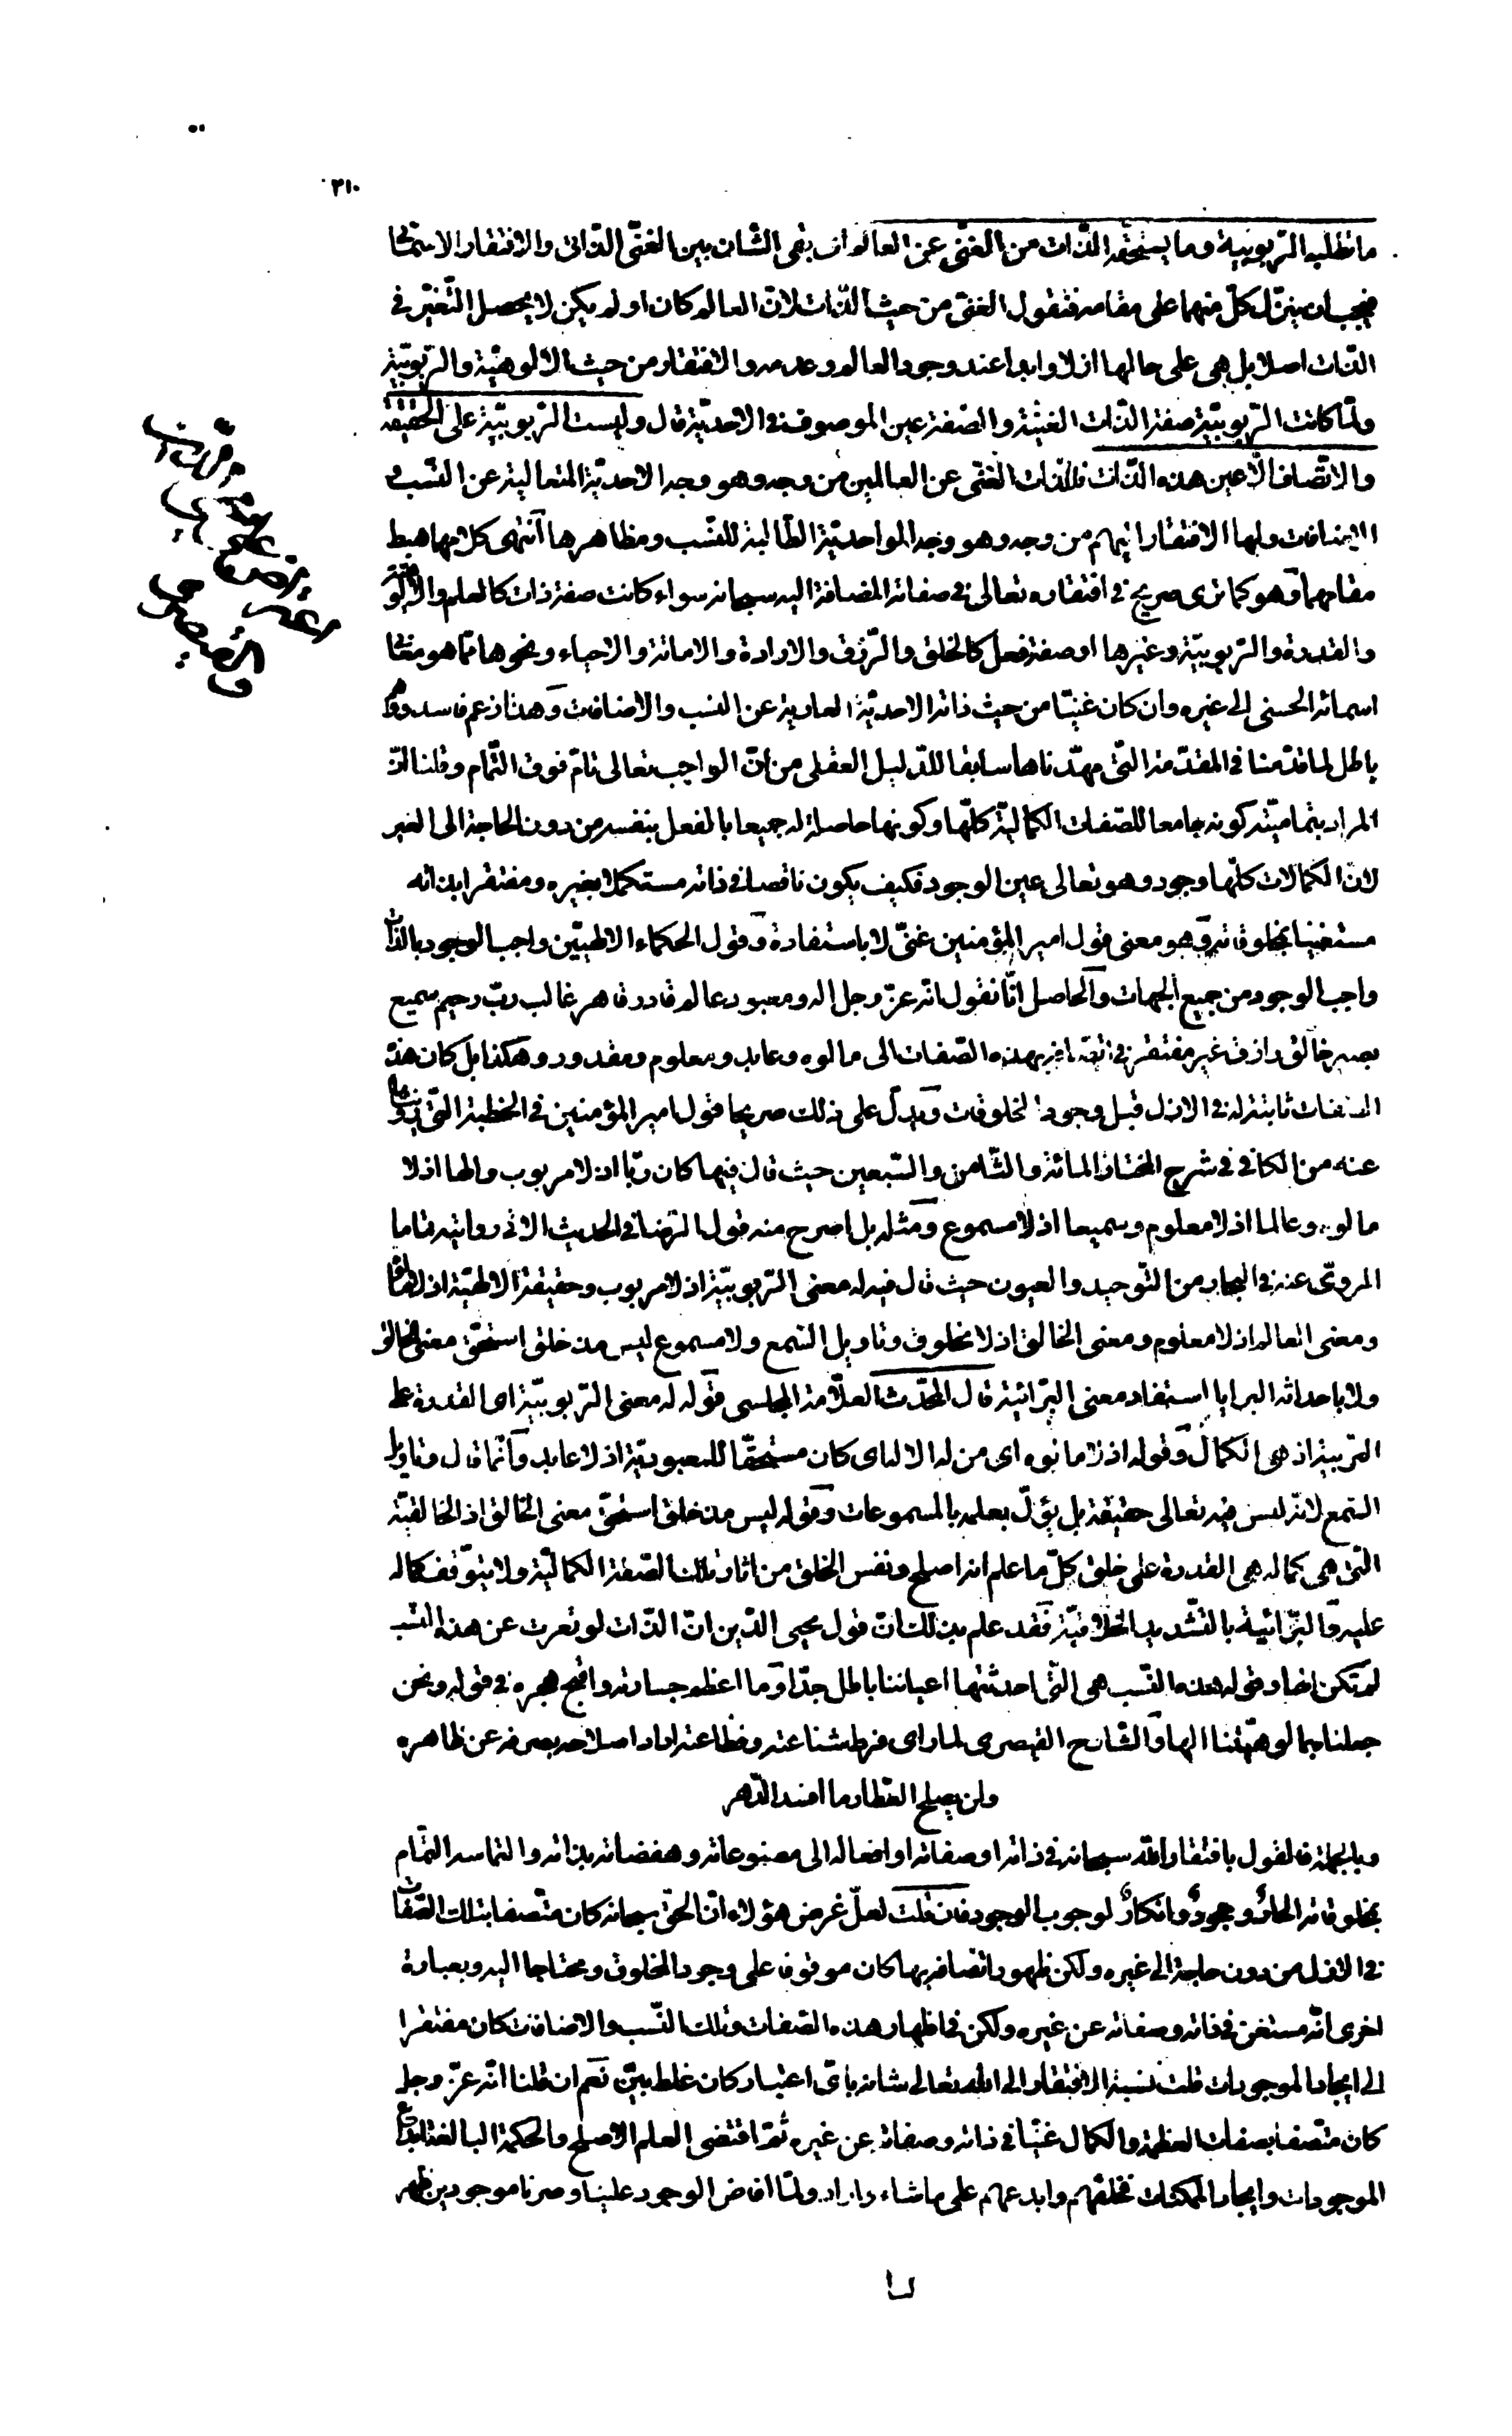 ٣١٠
ما تطلبه الرّبوبيّة وما يستحقّه الذّات من الغنى عن العالم اى بقى الشّان بين الغنى الذّاتى والافتقار الاسمائى
فيجب ان ينزّل كلّ منهما على مقامه فنقول الغنى من حيث الذّات لانّ العالم كان او لم يكن لا يحصل التّغيّر فى
الذّات اصلا بل هى على حالها ازلا وابدا عند وجود العالم وعدمه والافتقار من حيث الالوهيّة والرّبوبيّة
ولمّا كانت الرّبوبيّة صفة الذّات الغنيّة والصّفة عين الموصوف فى الاحديّة قال وليست الرّبوبيّة على الحقيقة
والاتّصاف الّا عين هذه الذّات فللذّات الغنى عن العالمين من وجه وهو وجه الاحديّة المتعالية عن النّسب و
الاضافات ولها الافتقار اليهم من وجه وهو وجه الواحديّة الطّالبة للنّسب ومظاهرها انتهى كلامهما هبط
مقامهما وهو كما ترى صريح فى افتقاره تعالى فى صفاته المضافة اليه سبحانه سواء كانت صفة ذات كالعلم والالوهيّة
والقدرة والرّبوبيّة وغيرها او صفة فعل كالخلق والرّزق والارادة والاماتة والاحياء ونحوها ممّا هو معنى
اسمائه الحسنى الى غيره وان كان غنيّا من حيث ذاته الاحديّة العارية عن النسب والاضافات وهذا زعم فاسد ووهم
باطل لما قدّمنا فى المقدّمة الّتى مهّدناها سابقا للدّليل العقلى من انّ الواجب تعالى تامّ فوق التّمام وقلنا انّ
المراد بتماميّته كونه جامعا للصّفات الكماليّة كلّها وكونها حاصلة له جميعا بالفعل بنفسه من دون الحاجة الى الغير
لانّ الكمالات كلّها وجود وهو تعالى عين الوجود فكيف يكون ناقصا فى ذاته مستكملا بغيره ومفتقرا بذاته
مستغنيا بمخلوقاته وهو معنى قول امير المؤمنين غنىّ لا باستفادة وقول الحكماء الالهيّين واجب الوجود بالذّات
واجب الوجود من جميع الجهات والحاصل انّا نقول انّه عزّ وجل اله ومعبود عالم قادر قاهر غالب ربّ رحيم سميع
بصير خالق رازق غير مفتقر فى اتّصافه بهذه الصّفات الى مالوه وعابد ومعلوم ومقدور وهكذا بل كان هذه
الصّفات ثابتة له فى الازل قبل وجود المخلوقات ويدلّ على ذلك صريحا قول امير المؤمنين فى الخطبة الّتى رويناها
عنه من الكافى فى شرح المختار المائة والثّامن والسّبعين حيث قال فيها كان ربّا اذ لا مربوب والها اذ لا
مالوه وعالما اذ لا معلوم وسميعا اذ لا مسموع ومثله بل اصرح منه قول الرّضا فى الحديث الاتى روايته تماما
المروىّ عنه فى البحار من التّوحيد والعيون حيث قال فيه له معنى الرّبوبيّة اذ لا مربوب وحقيقة الالهيّة اذ لا مالوه
ومعنى العالم اذ لا معلوم ومعنى الخالق اذ لا مخلوق وتاويل السّمع ولا مسموع ليس مذ خلق استحقّ معنى الخالق
ولا باحداثه البرايا استفاد معنى البرّائية قال المحدّث العلّامة المجلسى قوله له معنى الرّبوبيّة اى القدرة على
التّربية اذ هى الكمال وقوله اذ لا مالوه اى من له الاله اى كان مستحقّا للمعبوديّة اذ لا عابد وانّما قال وتاويل
السّمع لانّه ليس فيه تعالى حقيقة بل يؤوّل بعلمه بالمسموعات وقوله ليس مذ خلق استحقّ معنى الخالق اذ الخالقيّة
الّتى هى كماله هى القدرة على خلق كلّ ما علم انه اصلح ونفس الخلق من اثار تلك الصّفة الكماليّة ولا يتوقّف كماله
عليه والبرّائية بالتّشديد الخلّاقيّة فقد علم بذلك انّ قول محيى الدّين انّ الذّات لو تعرت عن هذه النّسب
لم تكن الها وقوله هذه النّسب هى الّتى احدثتها اعياننا باطل جدّا وما اعظم جسارته واقبح هجره فى قوله ونحن
جعلناه بمالوهيّتنا الها والشّارح القيصرى لما راى فرط شناعته وفظاعته اراد اصلاحه بصرفه عن ظاهره
ولن يصلح العطّار ما افسد الدّهر
وبالجملة فالقول بافتقار اللّه سبحانه فى ذاته او صفاته او افعاله الى مصنوعاته ونقصانه بذاته والتماسه التّمام
بمخلوقاته الحاد وجحود وانكار لوجوب الوجود فان قلت لعلّ غرض هؤلاء انّ الحقّ سبحانه كان متّصفا بتلك الصّفات
فى الازل من دون حاجة الى غيره ولكن ظهور اتّصافه بها كان موقوفا على وجود المخلوق ومحتاجا اليه وبعبارة
اخرى انّه مستغن فى ذاته وصفاته عن غيره ولكن فى اظهار هذه الصّفات وتلك النّسب والاضافات كان مفتقرا
الى ايجاد الموجودات قلت نسبة الافتقار الى اللّه تعالى شانه باىّ اعتبار كان غلط بيّن نعم ان قلنا انّه عزّ وجل
كان متّصفا بصفات العظمة والكمال غنيّا فى ذاته وصفاته عن غيره ثمّ اقتضى العلم الاصلح والحكمة البالغة ابداع
الموجودات وايجاد الممكنات فخلقهم وابدعهم على ما شاء واراد ولمّا افاض الوجود علينا وصرنا موجودين ظهر